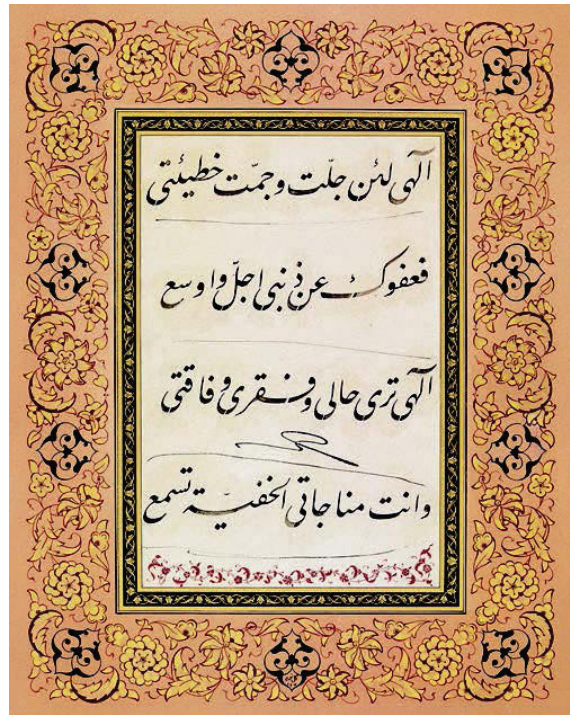 الهی لئن جلّت وجمّت خطیئتی
فعفوک عن ذنبی اجلّ واوسع
الهی تری حالی وفقری وفاقتی
وانت مناجاتی الخفیّة تسمع